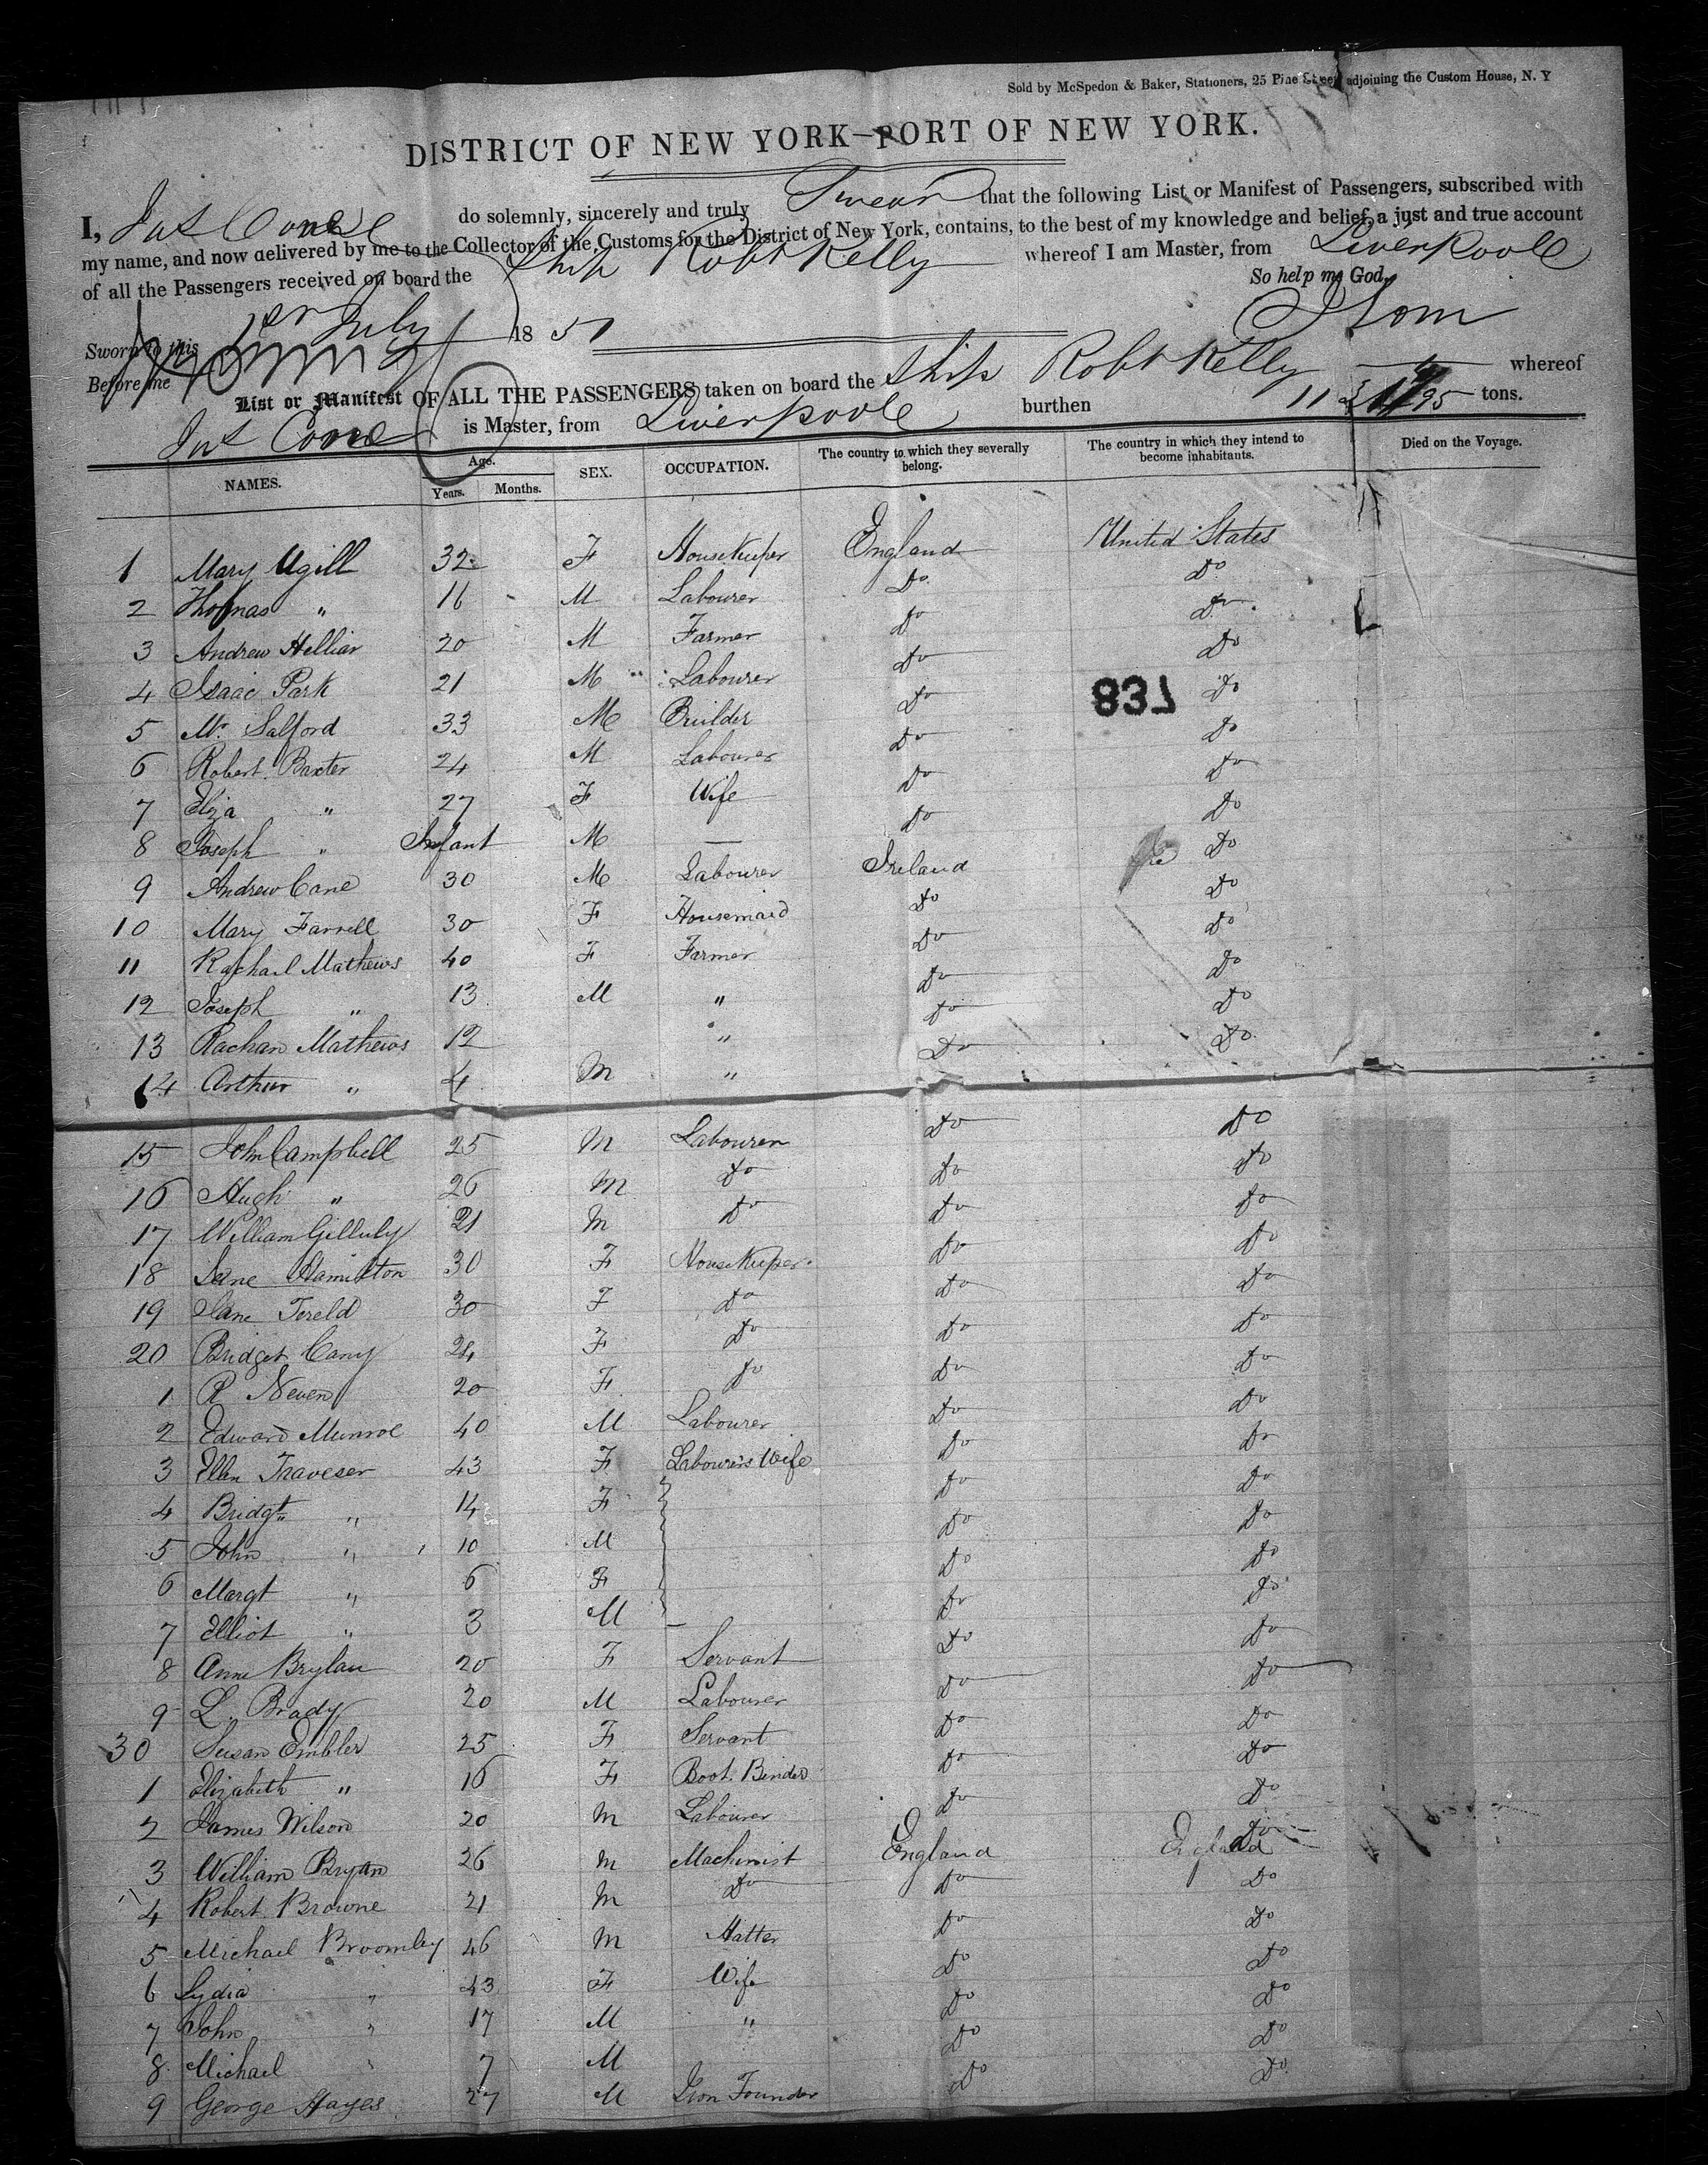 Sold by McSpedon & Baker, Stationers, 25 Pine Street adjoining the Custom House, N. Y
DISTRICT OF NEW YORK—PORT OF NEW YORK.
I, do solemnly, sincerely and truly Swear that the following List or Manifest of Passengers, subscribed with
my name, and now delivered by me to the Collector of the Customs for the District of New York, contains, to the best of my knowledge and belief, a just and true account
of all the Passengers received on board the Ship Robt Kelly whereof I am Master, from Liverpoole
So help me God.
Sworn to this 1st July 1851
Before me
List or Manifest OF ALL THE PASSENGERS taken on board the Ship Robt Kelly whereof
is Master, from Liverpoole burthen tons.
NAMES. Age. Years. Months. SEX. OCCUPATION. The country to which they severally belong. The country in which they intend to become inhabitants. Died on the Voyage.
1 Mary Ugill 32 F Housekeeper England United States
2 Thomas " 16 M Labourer Do Do
3 Andrew Helliar 20 M Farmer Do Do
4 Isaac Park 21 M Labourer Do Do
5 Mr. Salford 33 M Builder Do Do
837
6 Robert Baxter 24 M Labourer Do Do
7 Eliza " 27 F Wife Do Do
8 Joseph " Infant M — Do Do
9 Andrew Cane 30 M Labourer Ireland Do
10 Mary Farrell 30 F Housemaid Do Do
11 Rachael Mathews 40 F Farmer Do Do
12 Joseph " 13 M " Do Do
13 Rachan Mathews 12 " Do Do
14 Arthur " 4 M " Do Do
15 John Campbell 25 M Labourer Do Do
16 Hugh " 26 M Do Do Do
17 William Gilluly 21 M Do Do Do
18 Jane Hamilton 30 F Housekeeper Do Do
19 Jane Tereld 30 F Do Do Do
20 Bridget Cany 24 F Do Do Do
1 R Neven 20 F Do Do Do
2 Edward Munroe 40 M Labourer Do Do
3 Ellen Traveser 43 F Labourers Wife Do Do
4 Bridgt " 14 F Do Do
5 John " 10 M Do Do
6 Margt " 6 F Do Do
7 Elliot " 3 M Do Do
8 Anne Brylan 20 F Servant Do Do
9 L. Brady 20 M Labourer Do Do
30 Susan Embler 25 F Servant Do Do
1 Elizabeth " 16 F Boot Binder Do Do
2 James Wilson 20 M Labourer Do Do
3 William Bryan 26 M Machinist England England Do
4 Robert Browne 21 M Do Do Do
5 Michael Broomley 46 M Hatter Do Do
6 Lydia " 43 F Wife Do Do
7 John " 17 M " Do Do
8 Michael " 7 M Do Do
9 George Hayes 27 M Iron Founder Do Do